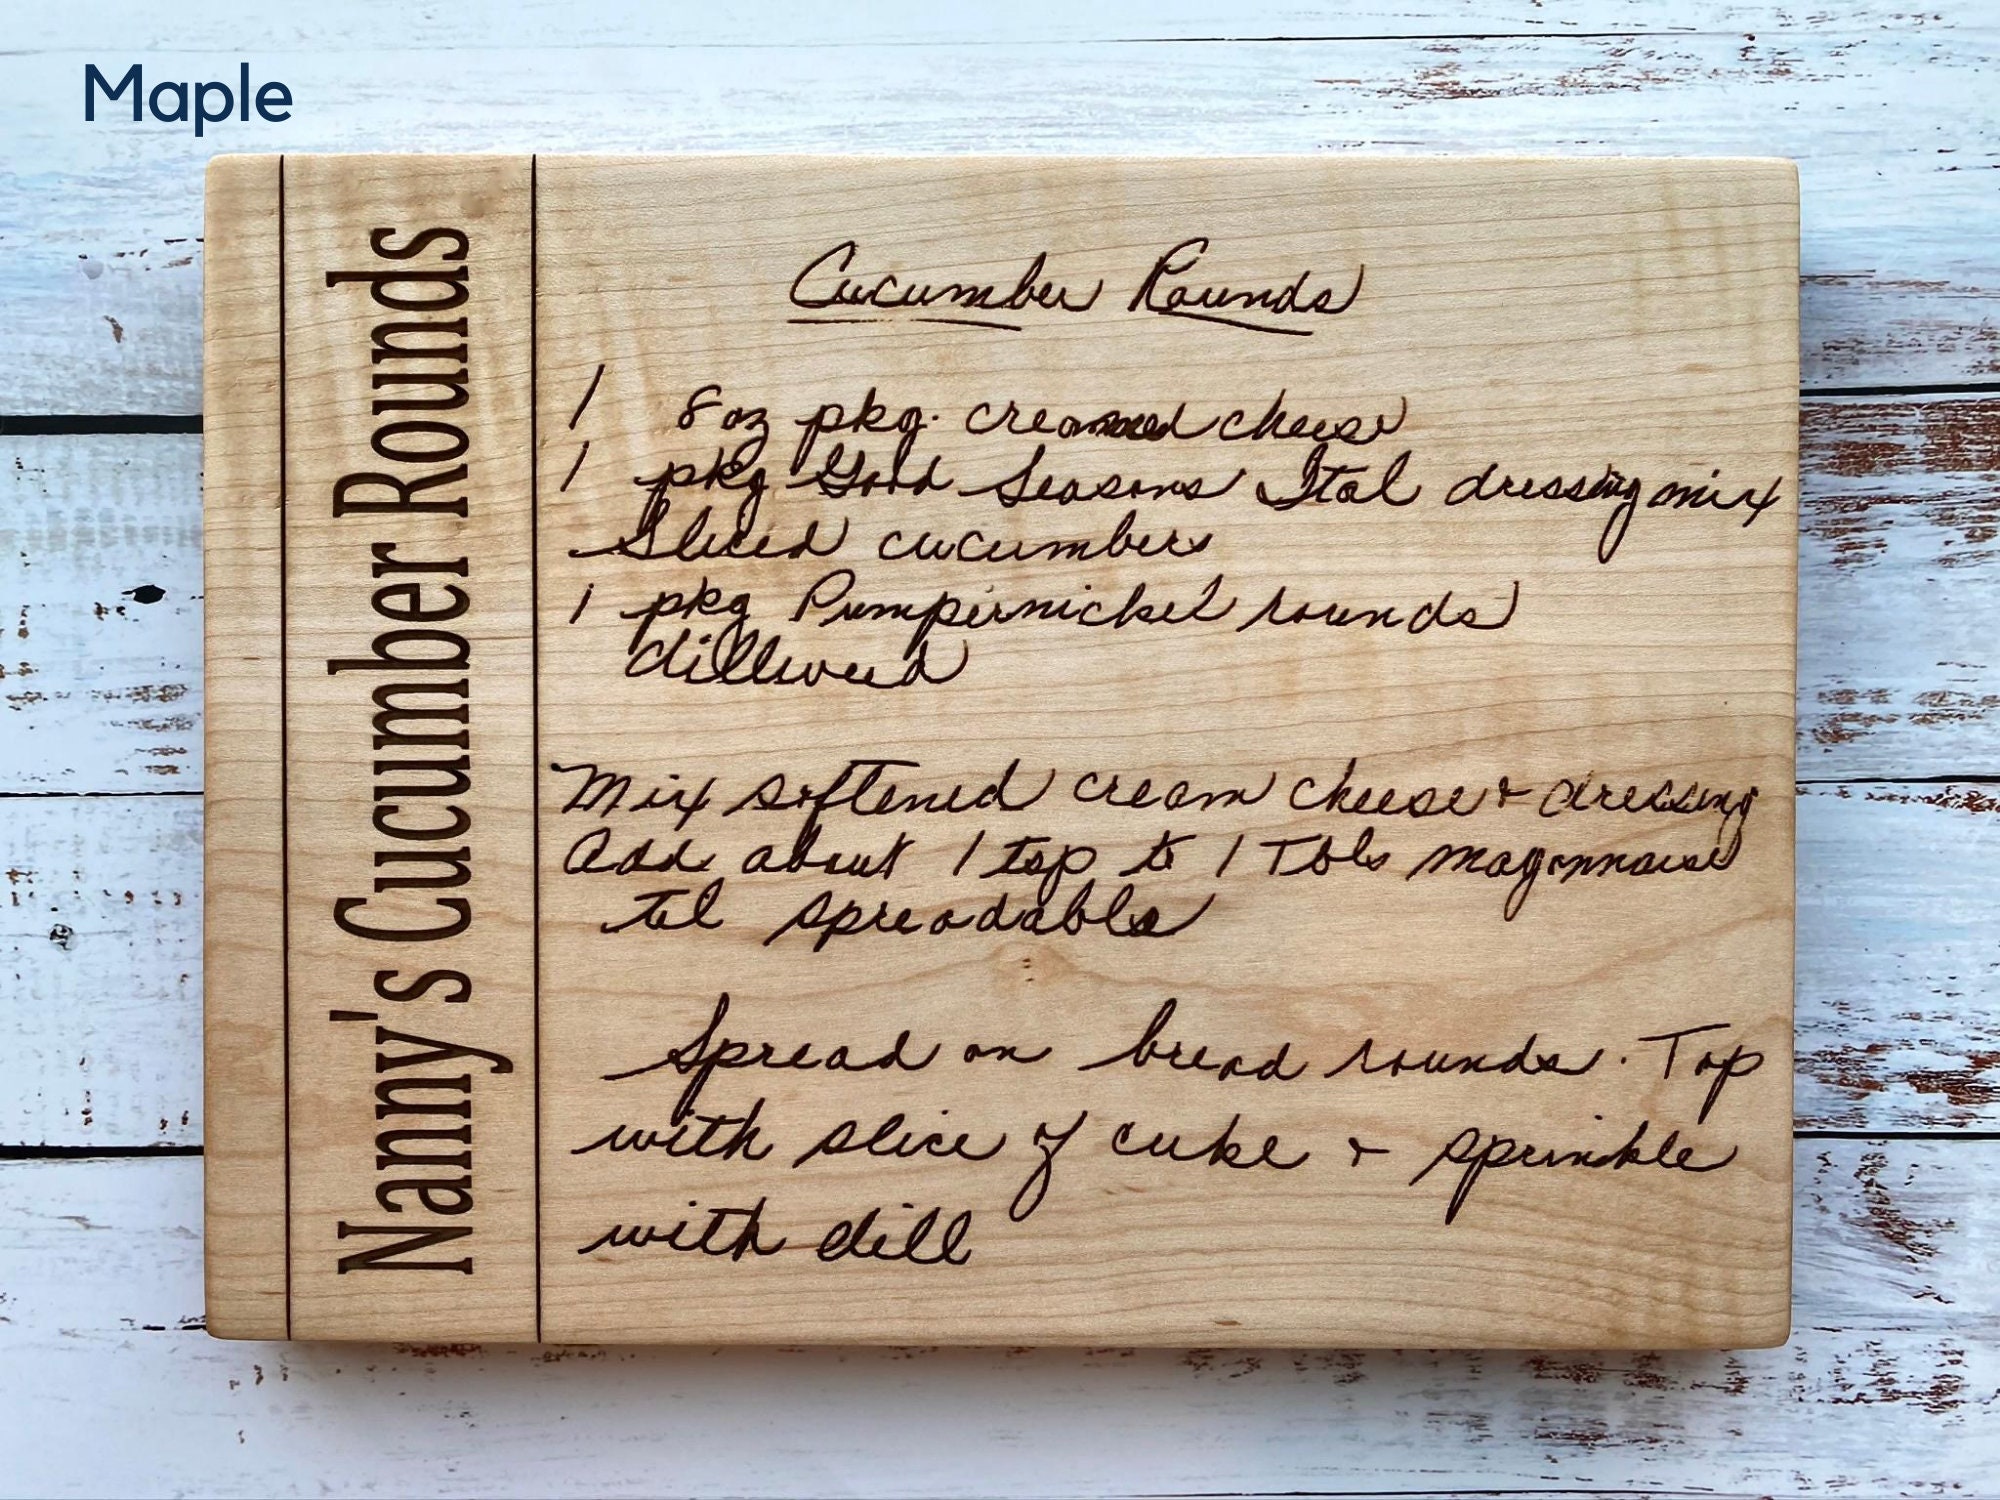 Maple
Nanny's Cucumber Rounds
Cucumber Rounds
1 8 oz pkg. creamed cheese
1 pkg Good Seasons Ital dressing mix
Sliced cucumbers
1 pkg Pumpernickel rounds
dillweed
Mix softened cream cheese & dressing
Add about 1 tsp to 1 Tbls mayonnaise
til spreadable
Spread on bread rounds. Top
with slice of cuke & sprinkle
with dill